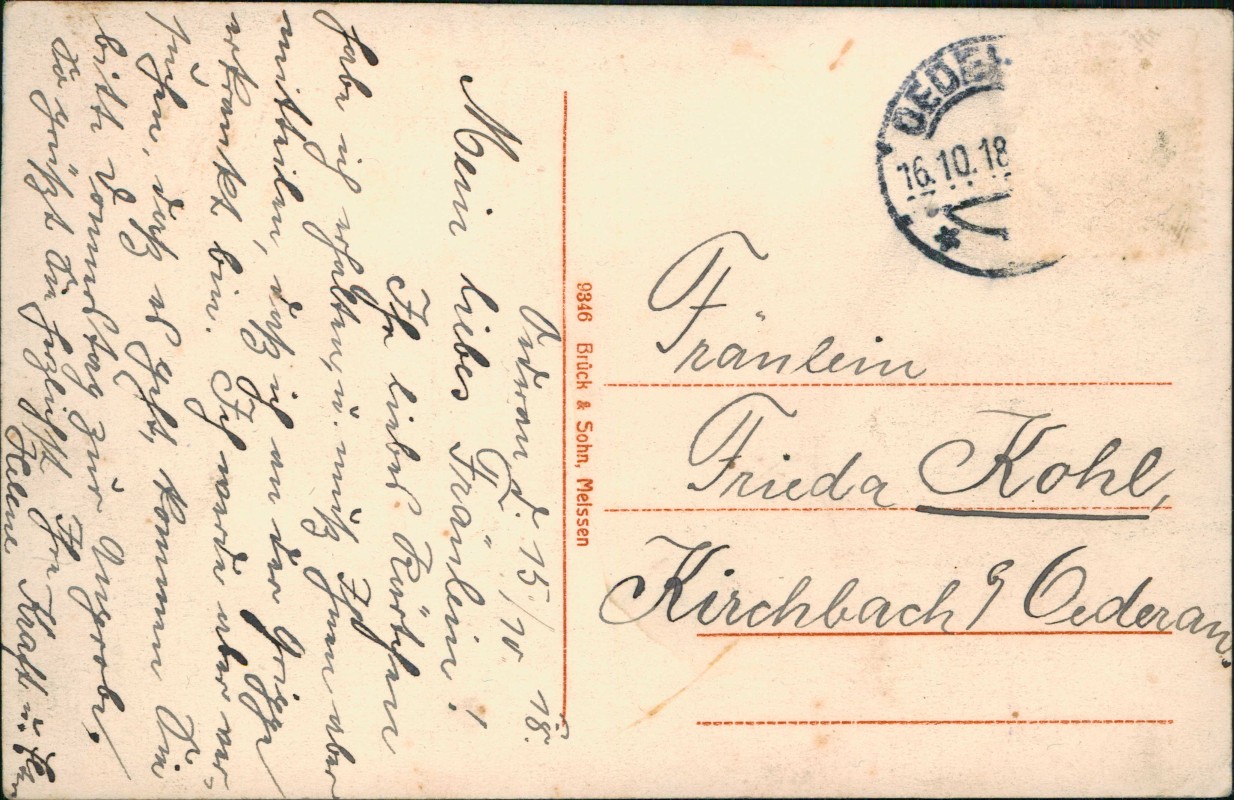 Oederan d. 15/10 18.
Mein liebes Fräulein!
Ihr liebes Kärtchen
habe ich erhalten, u. muß Ihnen aber
mitteilen, daß ich an der Grippe
erkrankt bin. Ich werde aber ver-
suchen, daß es geht, kommen Sie
bitte Donnerstag zur Anprobe.
Es grüßt Sie herzlichst Ihre
Helene Kraft u.
9346 Brück & Sohn, Meissen
OEDE
16.10.18
Fräulein
Frieda Kohl,
Kirchbach Oederan.